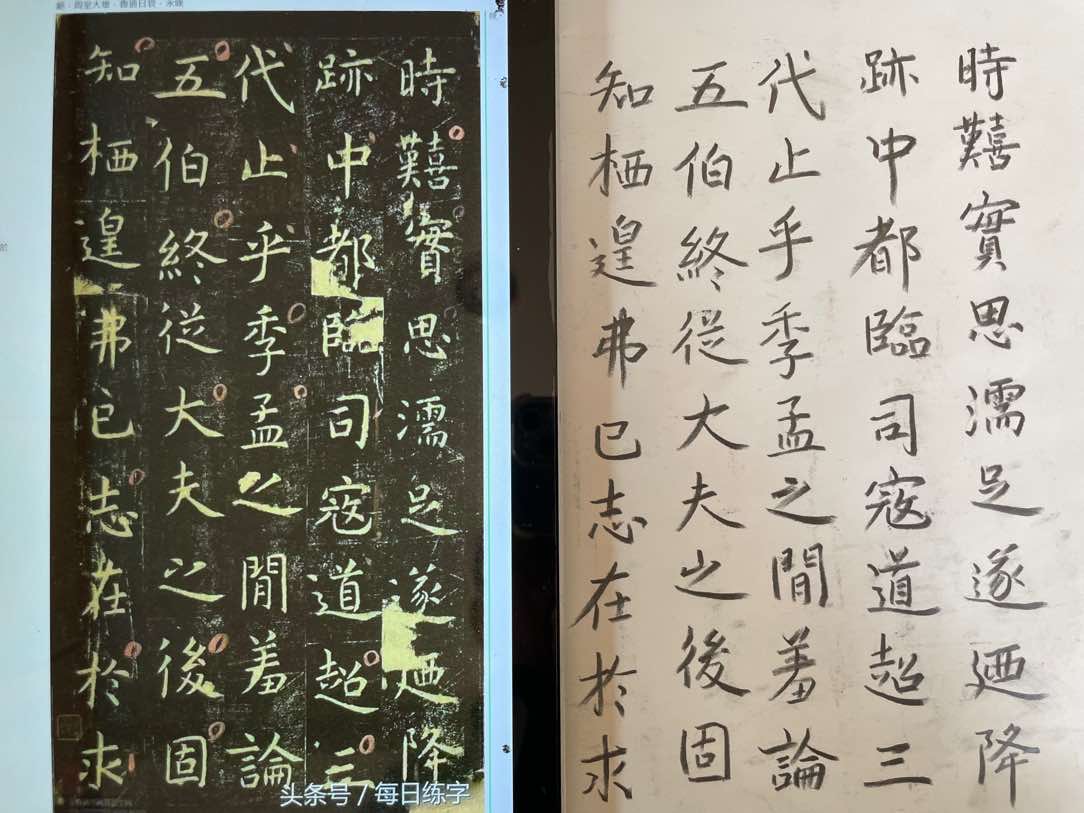 時囏實思濡足遂迺降
跡中都臨司寇道超三
代止乎季孟之間羞論
五伯終從大夫之後固
知栖遑弗已志在於求
頭条号/每日练字
時囏實思濡足遂迺降
跡中都臨司寇道超三
代止乎季孟之間羞論
五伯終從大夫之後固
知栖遑弗已志在於求